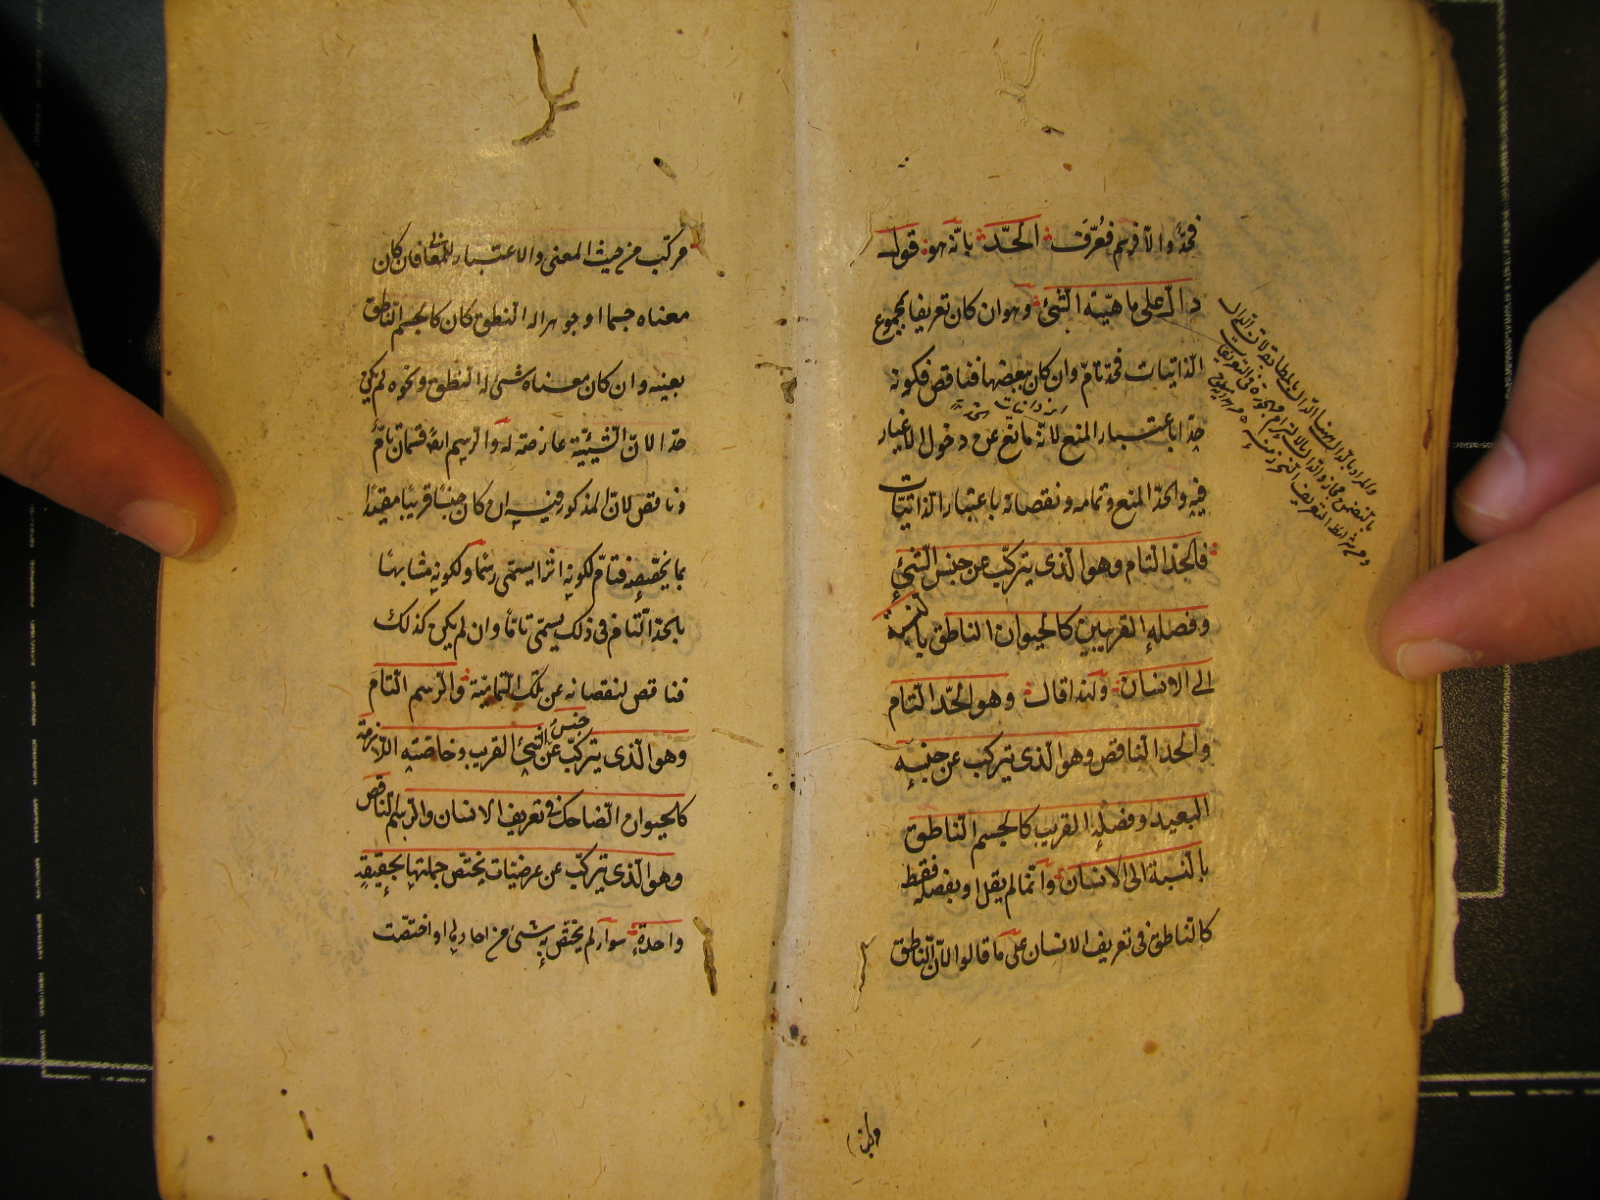 فحدّ والا فرسم فعُرّف الحَدّ بانّه هو قول
دالّ على ماهيّة الشّئ وهو ان كان تعريفا بمجموع
الذاتيات فحدّ تامّ وان كان ببعضها فناقص فكونه
حدّا باعتبار المنع لانّه مانع عن دخول الاغيار
فيه والحدّ المنع وتمامه ونقصانه باعتبار الذاتيّات
فالحدّ التّام وهو الّذى يتركّب عن جنس الشّئ
وفصله القريبين كالحيوان الناطق بالنسبة
الى الانسان ولذا قال وهو الحدّ التّام
والحد النّاقص وهو الذى يتركب عن جنسه
البعيد وفصله القريب كالجسم النّاطق
بالنّسبة الى الانسان وانّما لم يقل او بفصله فقط
كالنّاطق فى تعريف الانسان على ما قالوا لانّ النّاطق
مركّب من حيث المعنى والاعتبار للمعانى فان كان
معناه جسما او جوهرا له النطق كان كالجسم النّاطق
بعينه وان كان معناه شئ له النطق ونحوه لم يكن
حدّا لانّ الشّيئيّة عارضة له والرسم ايضً قسمان تامّ
وناقص لانّ المذكور فيه ان كان جنسًا قريبًا مقيّدًا
بما يخصّصه فتامّ لكونه اثرا يسمّى رسمًا ولكونه مشابهًا
بالحدّ التّام فى ذلك يسمّى تامًّا وان لم يكن كذلك
فناقص لنقصانه عن تلك التّماميّة والرّسم التّام
وهو الّذى يتركّب عن جنس الشّئ القريب وخاصّته اللّازمة
كالحيوان الضّاحك فى تعريف الانسان والرّسم النّاقص
وهو الّذى يتركّب عن عرضيّات يختصّ جملتها بحقيقة
واحدة سواء لم يختصّ به شئ من احاديها او اختصّت